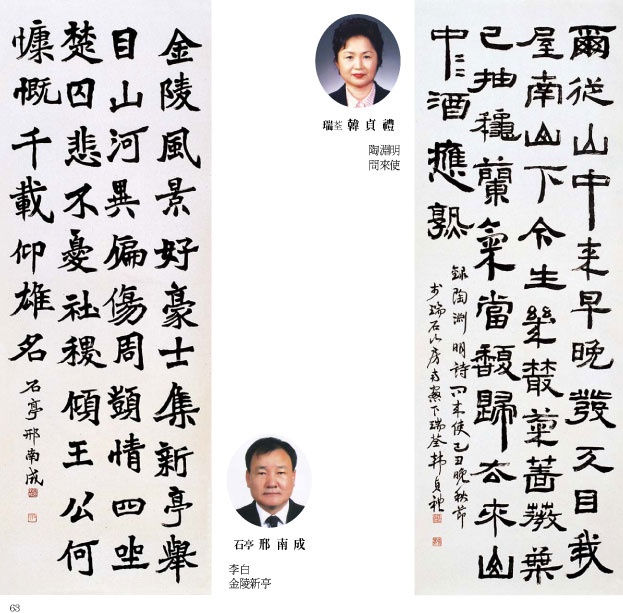 爾從山中来早晚發天目我
屋南山下今生幾叢菊薔薇葉
已抽穐蘭氣當馥歸去来山
中〻酒應熟
錄陶渊明詩問来使己丑晚秋節
於瑞石山房南窓下瑞荃韓貞禮
瑞荃 韓貞禮
陶淵明
問來使
金陵風景好豪士集新亭舉
目山河異偏傷周顗情四坐
楚囚悲不憂社稷傾王公何
慷慨千載仰雄名
石亭邢南成
石亭 邢南成
李白
金陵新亭
63